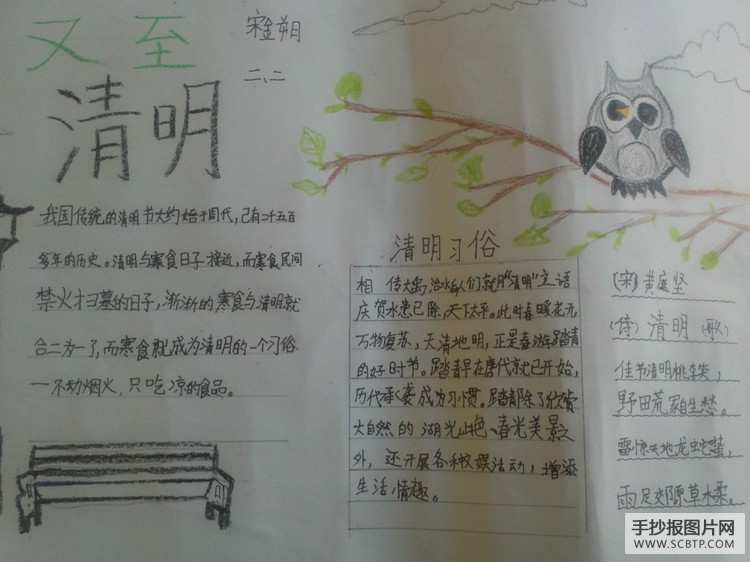 又至
清明
宋金朔
二、二
我国传统的清明节大约始于周代,已有二千五百
多年的历史。清明与寒食日子接近,而寒食民间
禁火扫墓的日子,渐渐的寒食与清明就
合二为一了,而寒食就成为清明的一个习俗
一不动烟火,只吃凉的食品。
清明习俗
相传大禹治水后,人们就用“清明”之语
庆贺水患已除,天下太平。此时春暖花
万物复苏,天清地明,正是春游踏青
的好时节。踏青早在唐代就已开始,
历代承袭成为习惯。踏青除了欣赏
大自然的湖光山色、春光美景之
外,还开展各种文娱活动,增添
生活情趣。
(宋)黄庭坚
(诗)清明(歌)
佳节清明桃李笑,
野田荒冢自生愁。
雷惊天地龙蛇蛰,
雨足郊原草木柔。
手抄报图片网
WWW.SCBTP.COM